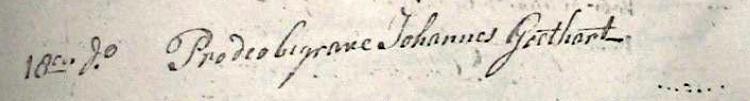 18en do Prodeo begrave Johannes Goothart